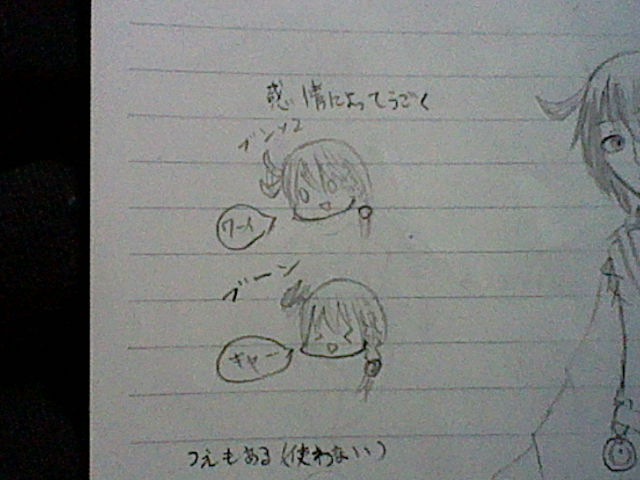 感情によってうごく
ブンブン
ワーイ
ブーン
ギャー
つえもある(使わない)